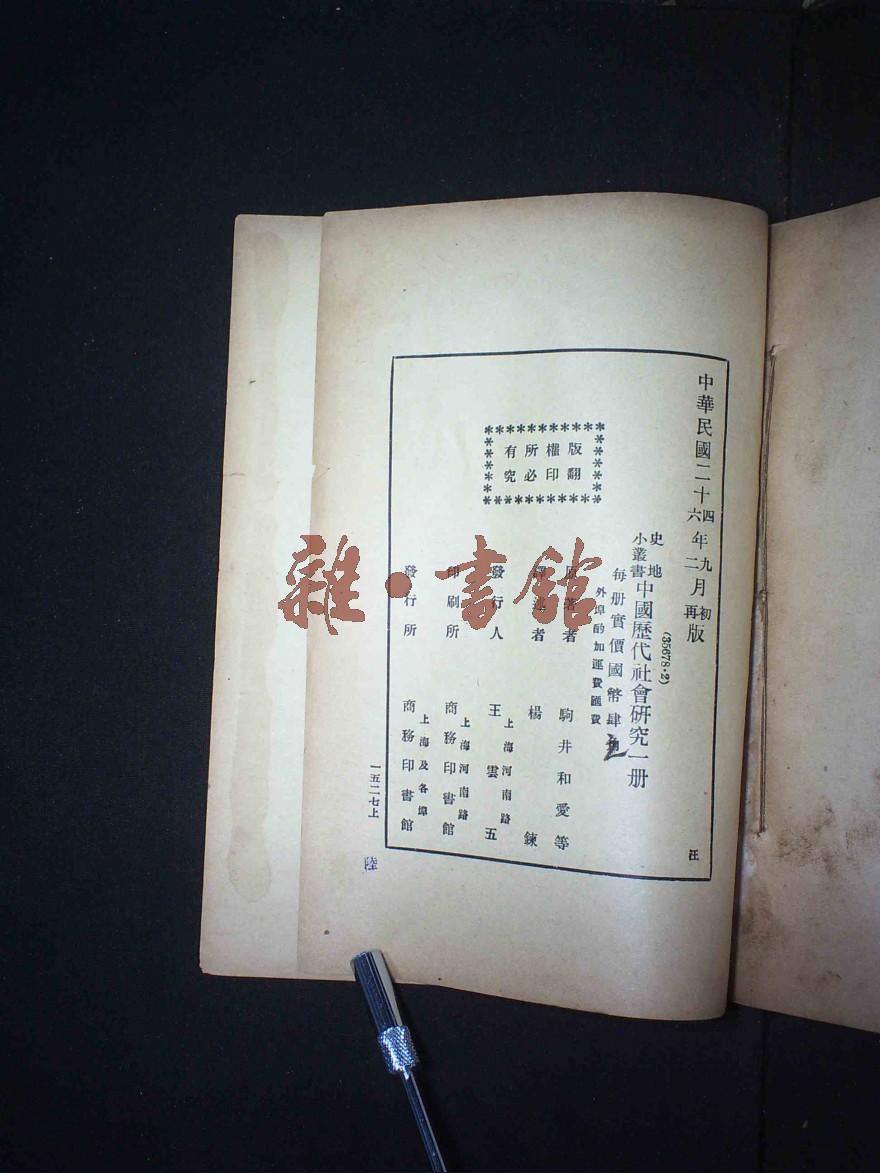 中華民國二十四年九月初版
六 二 再
汪
(35678·2)
史地小叢書
中國歷代社會研究一册
每册實價國幣肆
外埠酌加運費匯費
版權所有
翻印必究
原著者 駒井和愛等
譯述者 楊鍊
發行人 王雲五
上海河南路
印刷所 商務印書館
上海河南路
發行所 商務印書館
上海及各埠
一五二七上
陸
雜·書館